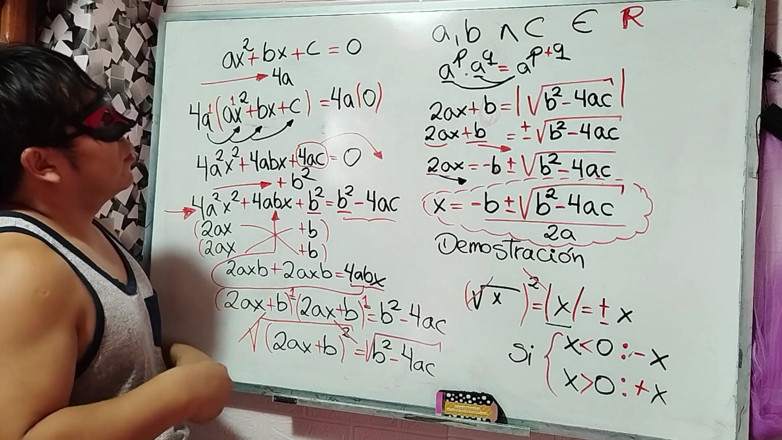 ax² + bx + c = 0
4a
4a¹(a¹x² + bx + c) = 4a(0)
4a²x² + 4abx + 4ac = 0
+ b²
4a²x² + 4abx + b² = b² - 4ac
(2ax + b)
(2ax + b)
2axb + 2axb = 4abx
(2ax + b)¹(2ax + b)¹ = b² - 4ac
√(2ax + b)² = √b² - 4ac
a, b ∧ C ∈ R
aᵖ · a^q = a^p+q
2ax + b = |√b² - 4ac|
2ax + b = ±√b² - 4ac
2ax = -b ± √b² - 4ac
x = -b ± √b² - 4ac
2a
Demostración
(√x)² = |x| = ± x
Si { x < 0 : - x
x > 0 : + x